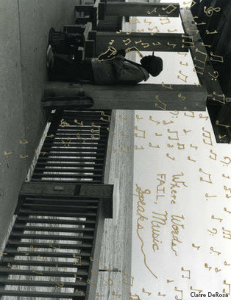 Where Words
FAIL, Music
Speaks
Claire DeRosa